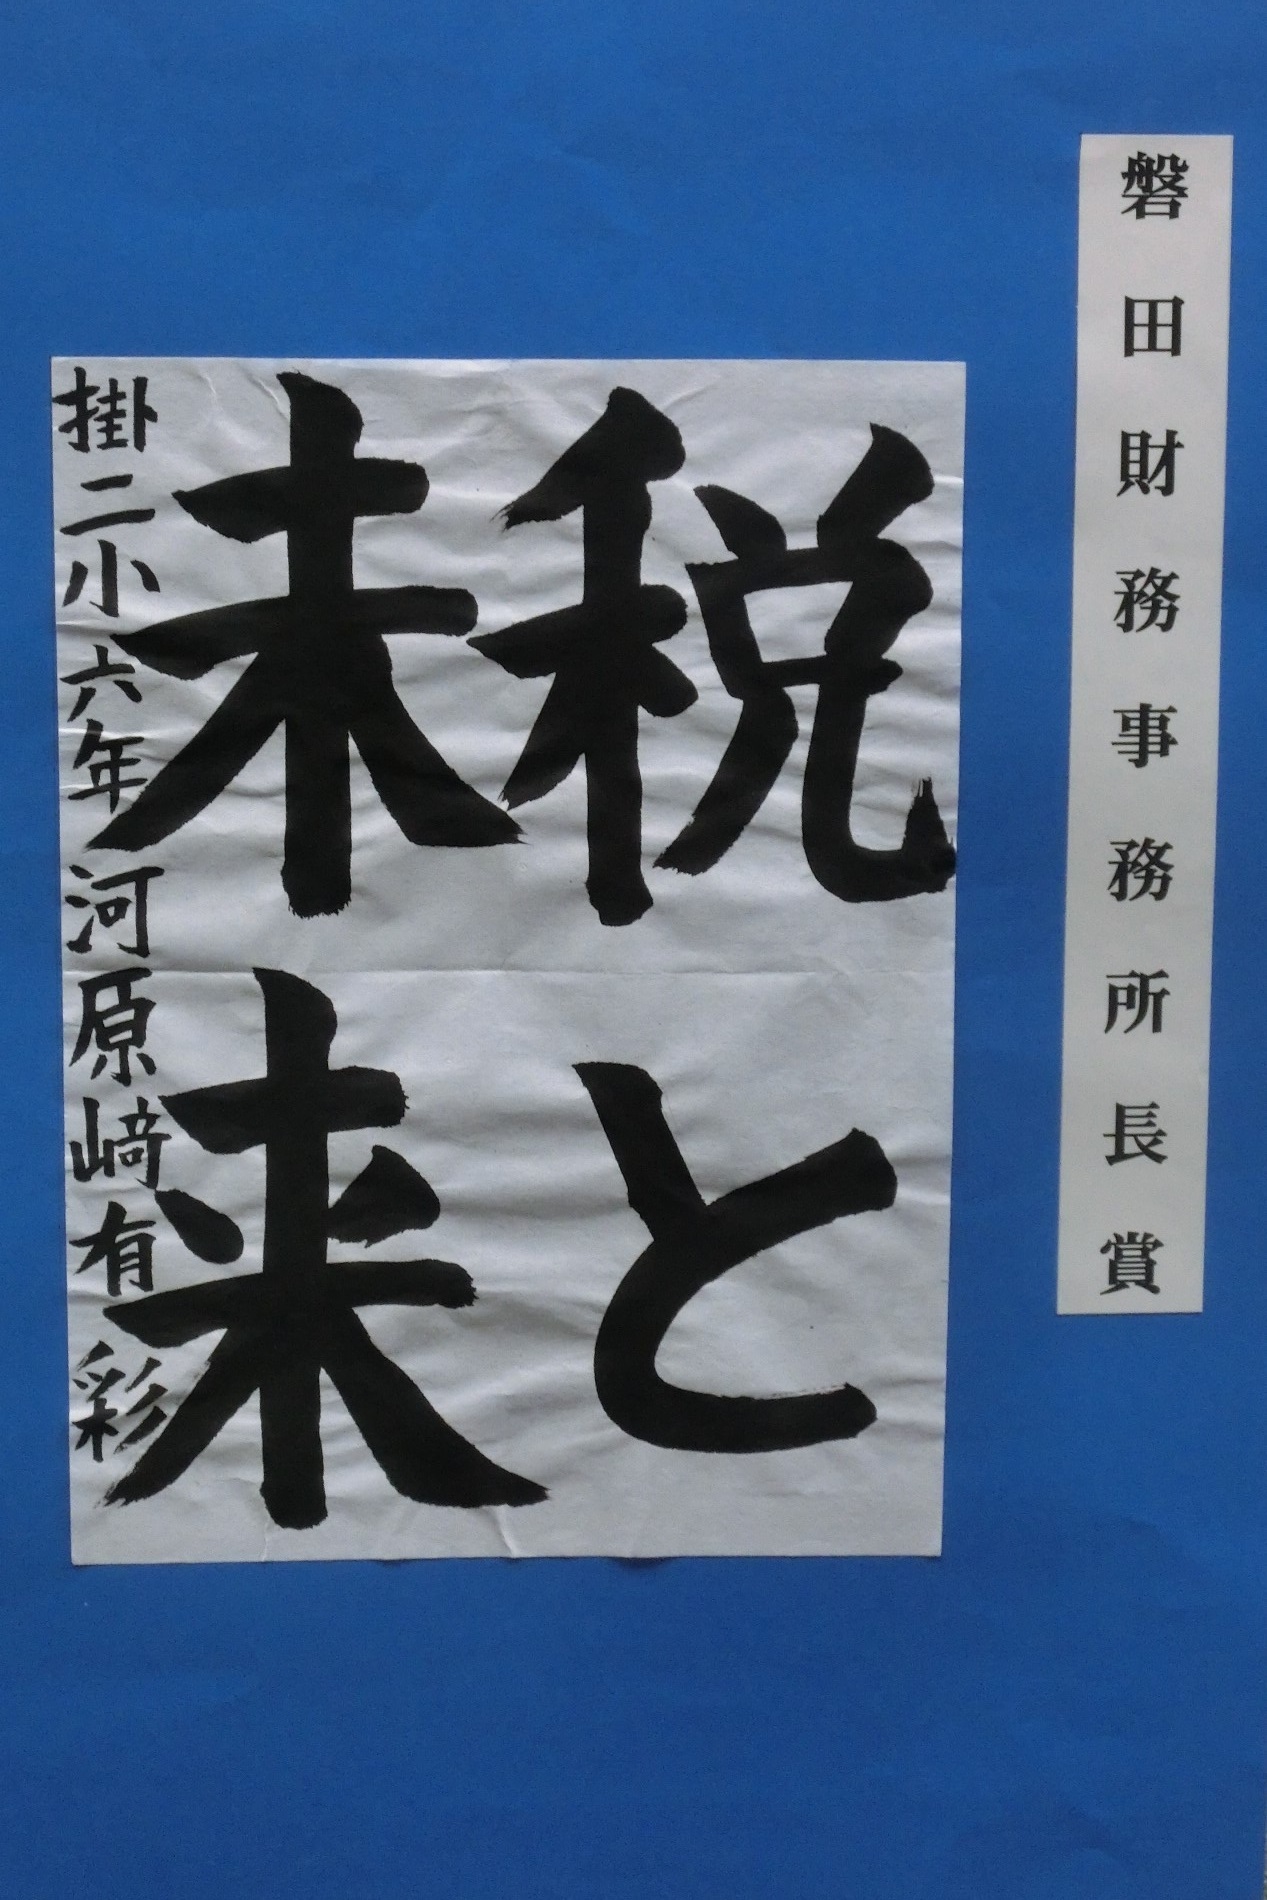 磐田財務事務所長賞
税と
未来
掛二小六年河原﨑有彩